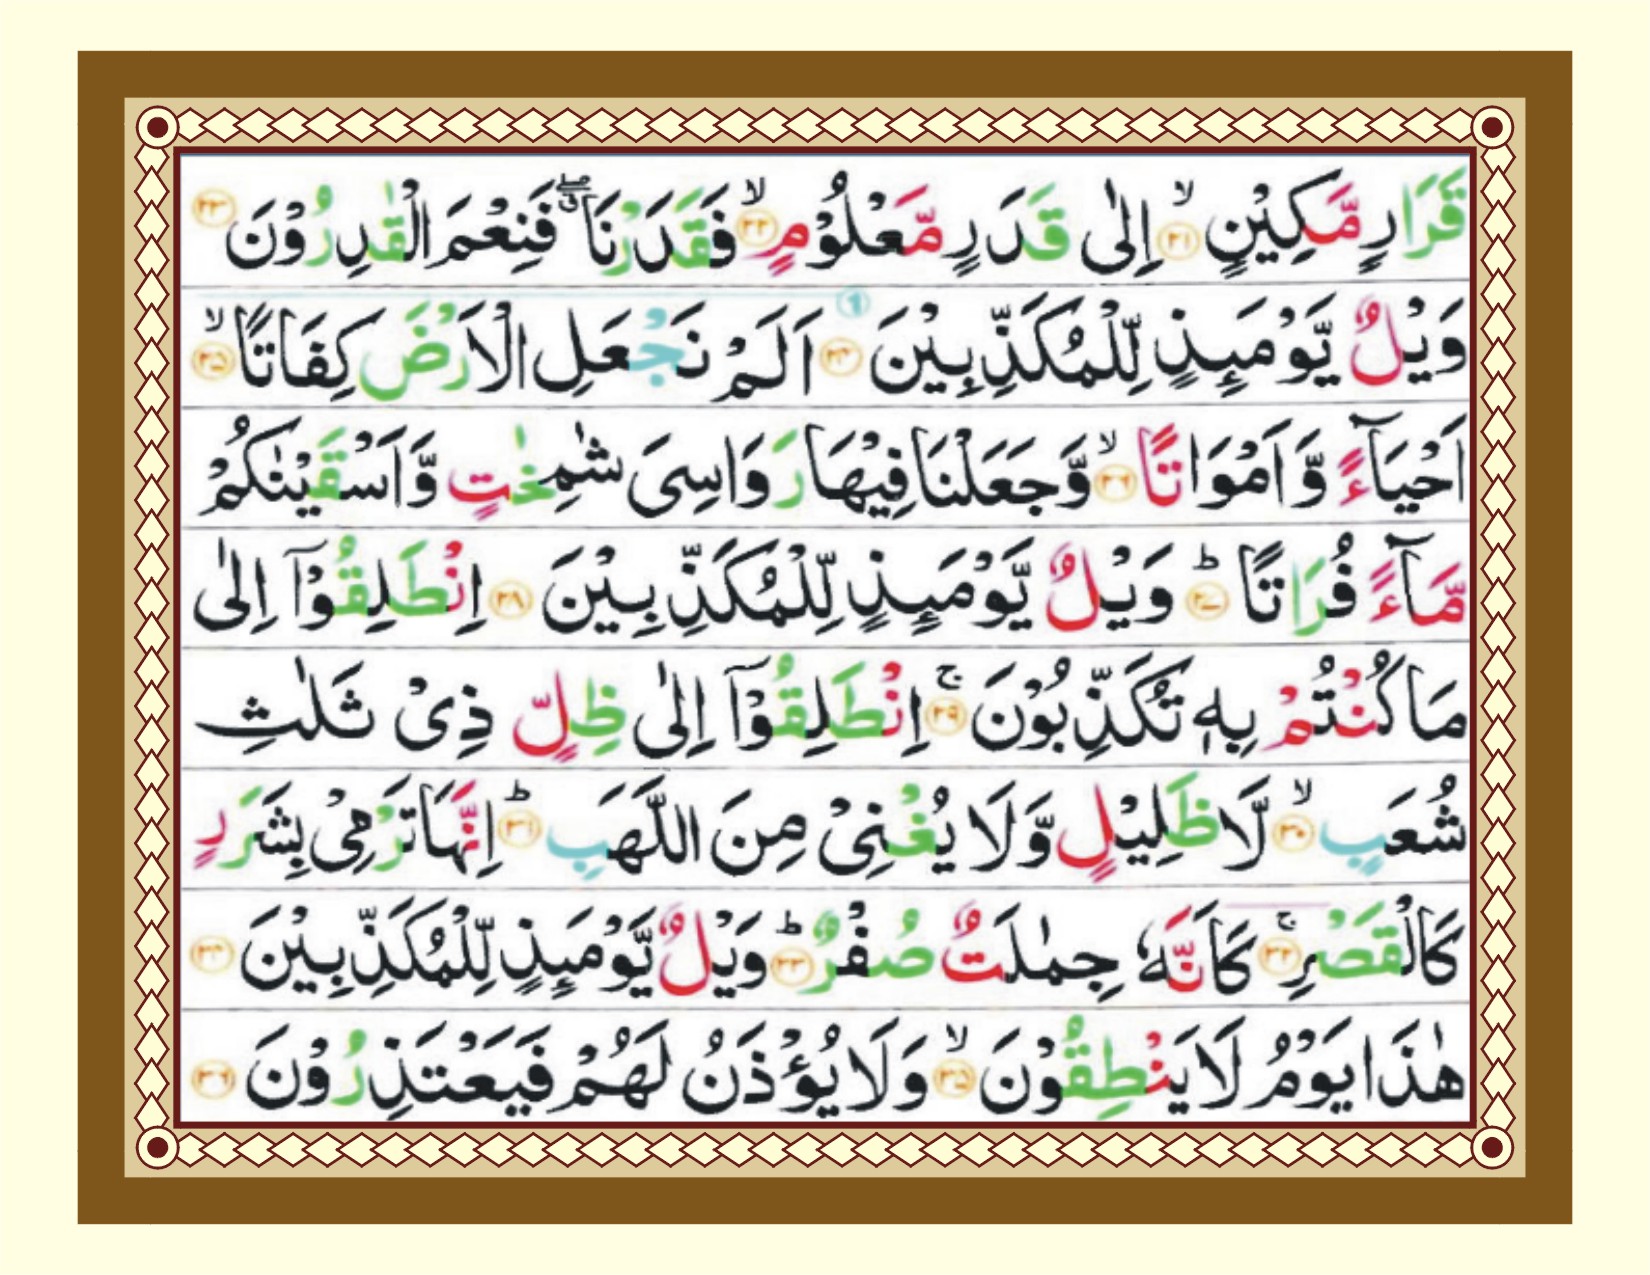 قَرَارٍ مَّكِيْنٍ ۙ ﴿۲۱﴾ اِلٰى قَدَرٍ مَّعْلُوْمٍ ۙ ﴿۲۲﴾ فَقَدَرْنَا ۖۗ فَنِعْمَ الْقٰدِرُوْنَ ﴿۲۳﴾
وَيْلٌ يَّوْمَىِٕذٍ لِّلْمُكَذِّبِيْنَ ﴿۲۴﴾ اَلَمْ نَجْعَلِ الْاَرْضَ كِفَاتًا ۙ ﴿۲۵﴾
اَحْيَآءً وَّاَمْوَاتًا ۙ ﴿۲۶﴾ وَّجَعَلْنَا فِيْهَا رَوَاسِىَ شٰمِخٰتٍ وَّاَسْقَيْنٰكُمْ
مَّآءً فُرَاتًا ؕ ﴿۲۷﴾ وَيْلٌ يَّوْمَىِٕذٍ لِّلْمُكَذِّبِيْنَ ﴿۲۸﴾ اِنْطَلِقُوْٓا اِلٰى
مَا كُنْتُمْ بِهٖ تُكَذِّبُوْنَ ۚ ﴿۲۹﴾ اِنْطَلِقُوْٓا اِلٰى ظِلٍّ ذِىْ ثَلٰثِ
شُعَبٍ ۙ ﴿۳۰﴾ لَّا ظَلِيْلٍ وَّلَا يُغْنِىْ مِنَ اللَّهَبِ ؕ ﴿۳۱﴾ اِنَّهَا تَرْمِىْ بِشَرَرٍ
كَالْقَصْرِ ۚ ﴿۳۲﴾ كَاَنَّهٗ جِمٰلَتٌ صُفْرٌ ؕ ﴿۳۳﴾ وَيْلٌ يَّوْمَىِٕذٍ لِّلْمُكَذِّبِيْنَ ﴿۳۴﴾
هٰذَا يَوْمُ لَا يَنْطِقُوْنَ ۙ ﴿۳۵﴾ وَلَا يُؤْذَنُ لَهُمْ فَيَعْتَذِرُوْنَ ﴿۳۶﴾